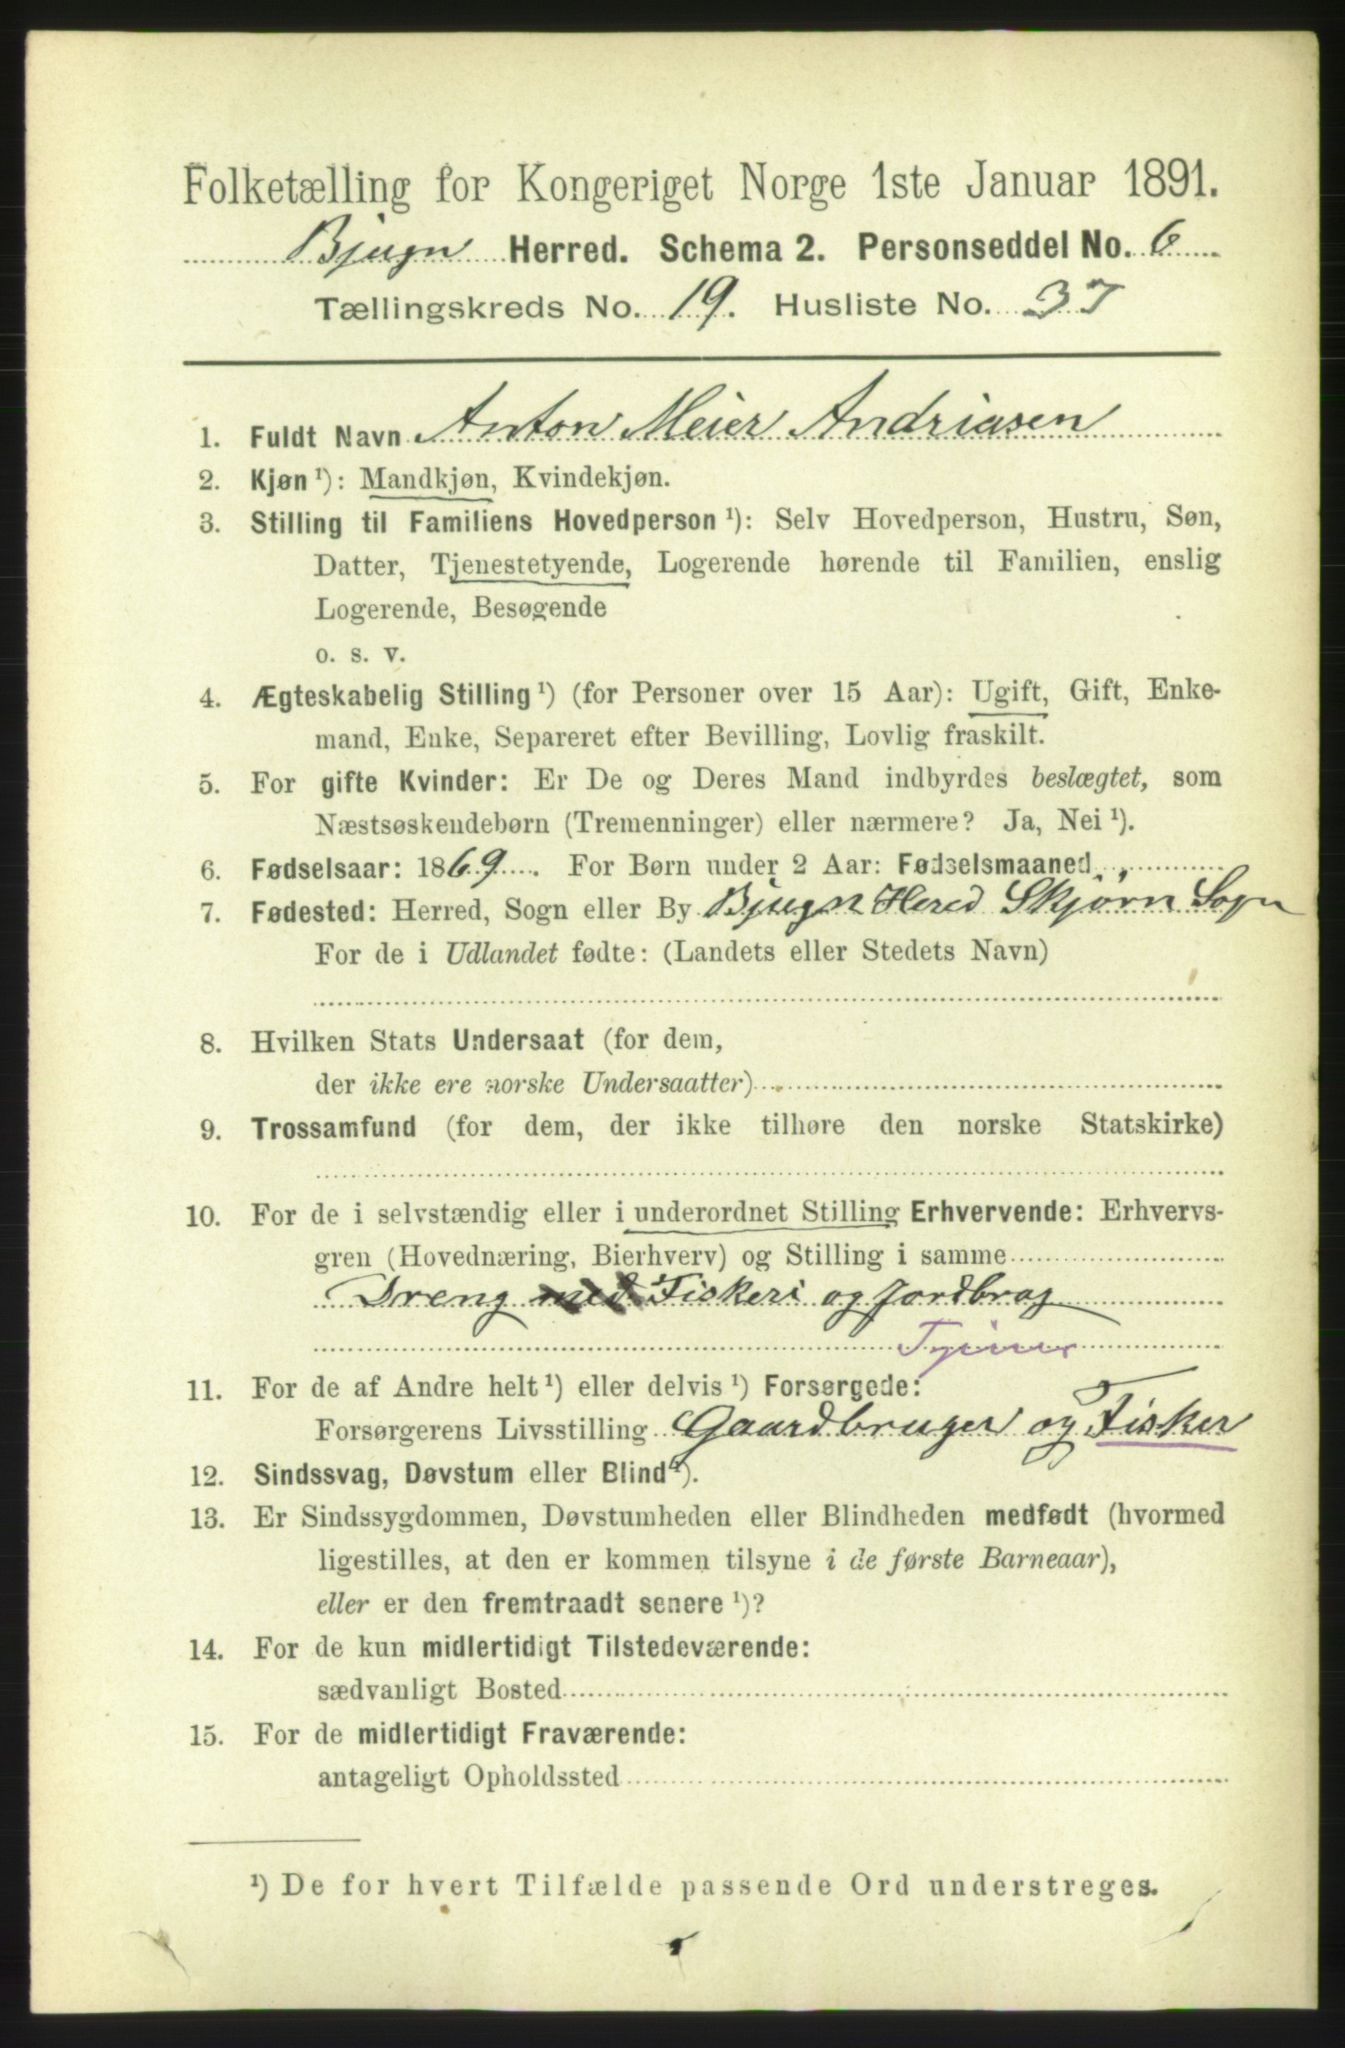 Folketælling for Kongeriget Norge 1ste Januar 1891.
Bjugn Herred. Schema 2. Personseddel No. 6
Tællingskreds No. 19. Husliste No. 37
1. Fuldt Navn Anton Meier Andriasen
2. Kjøn ¹): Mandkjøn, Kvindekjøn.
3. Stilling til Familiens Hovedperson ¹): Selv Hovedperson, Hustru, Søn,
Datter, Tjenestetyende, Logerende hørende til Familien, enslig
Logerende, Besøgende
o. s. v.
4. Ægteskabelig Stilling ¹) (for Personer over 15 Aar): Ugift, Gift, Enke-
mand, Enke, Separeret efter Bevilling, Lovlig fraskilt.
5. For gifte Kvinder: Er De og Deres Mand indbyrdes beslægtet, som
Næstsøskendebørn (Tremenninger) eller nærmere? Ja, Nei ¹).
6. Fødselsaar: 1869. For Børn under 2 Aar: Fødselsmaaned
7. Fødested: Herred, Sogn eller By Bjugn Hered Skjørn Sogn
For de i Udlandet fødte: (Landets eller Stedets Navn)
8. Hvilken Stats Undersaat (for dem,
der ikke ere norske Undersaatter)
9. Trossamfund (for dem, der ikke tilhøre den norske Statskirke)
10. For de i selvstændig eller i underordnet Stilling Erhvervende: Erhvervs-
gren (Hovednæring, Bierhverv) og Stilling i samme
Dreng med Fiskeri og Jordbrag
11. For de af Andre helt ¹) eller delvis ¹) Forsørgede:
Forsørgerens Livsstilling Gaardbruger og Fisker
12. Sindssvag, Døvstum eller Blind ¹).
13. Er Sindssygdommen, Døvstumheden eller Blindheden medfødt (hvormed
ligestilles, at den er kommen tilsyne i de første Barneaar),
eller er den fremtraadt senere ¹)?
14. For de kun midlertidigt Tilstedeværende:
sædvanligt Bosted
15. For de midlertidigt Fraværende:
antageligt Opholdssted
¹) De for hvert Tilfælde passende Ord understreges.